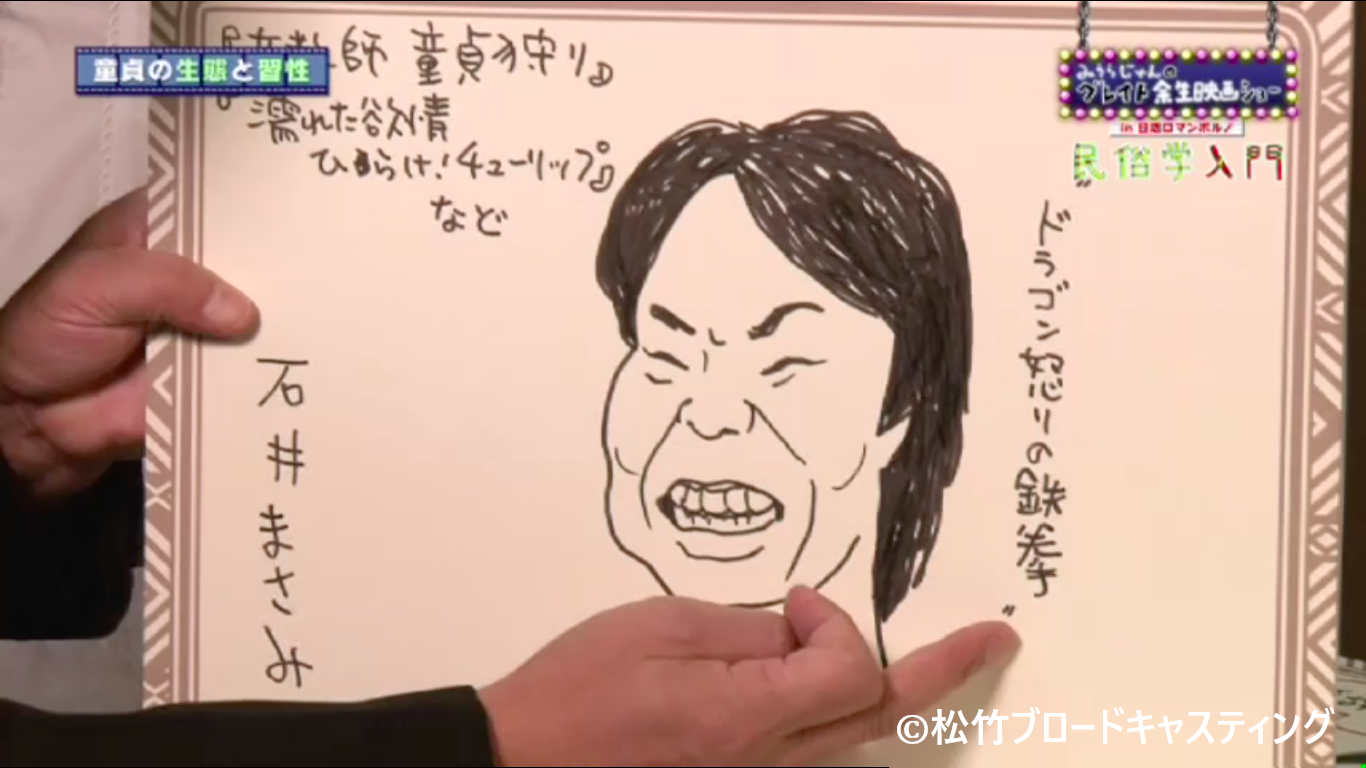 童貞の生態と習性
師 童貞狩り』
『濡れた欲情
ひらけ!チューリップ』
など
石井まさみ
みうらじゅんの
グレイト余生映画ショー
in 日活ロマンポルノ
民俗学入門
"ドラゴン怒りの鉄拳"
©松竹ブロードキャスティング